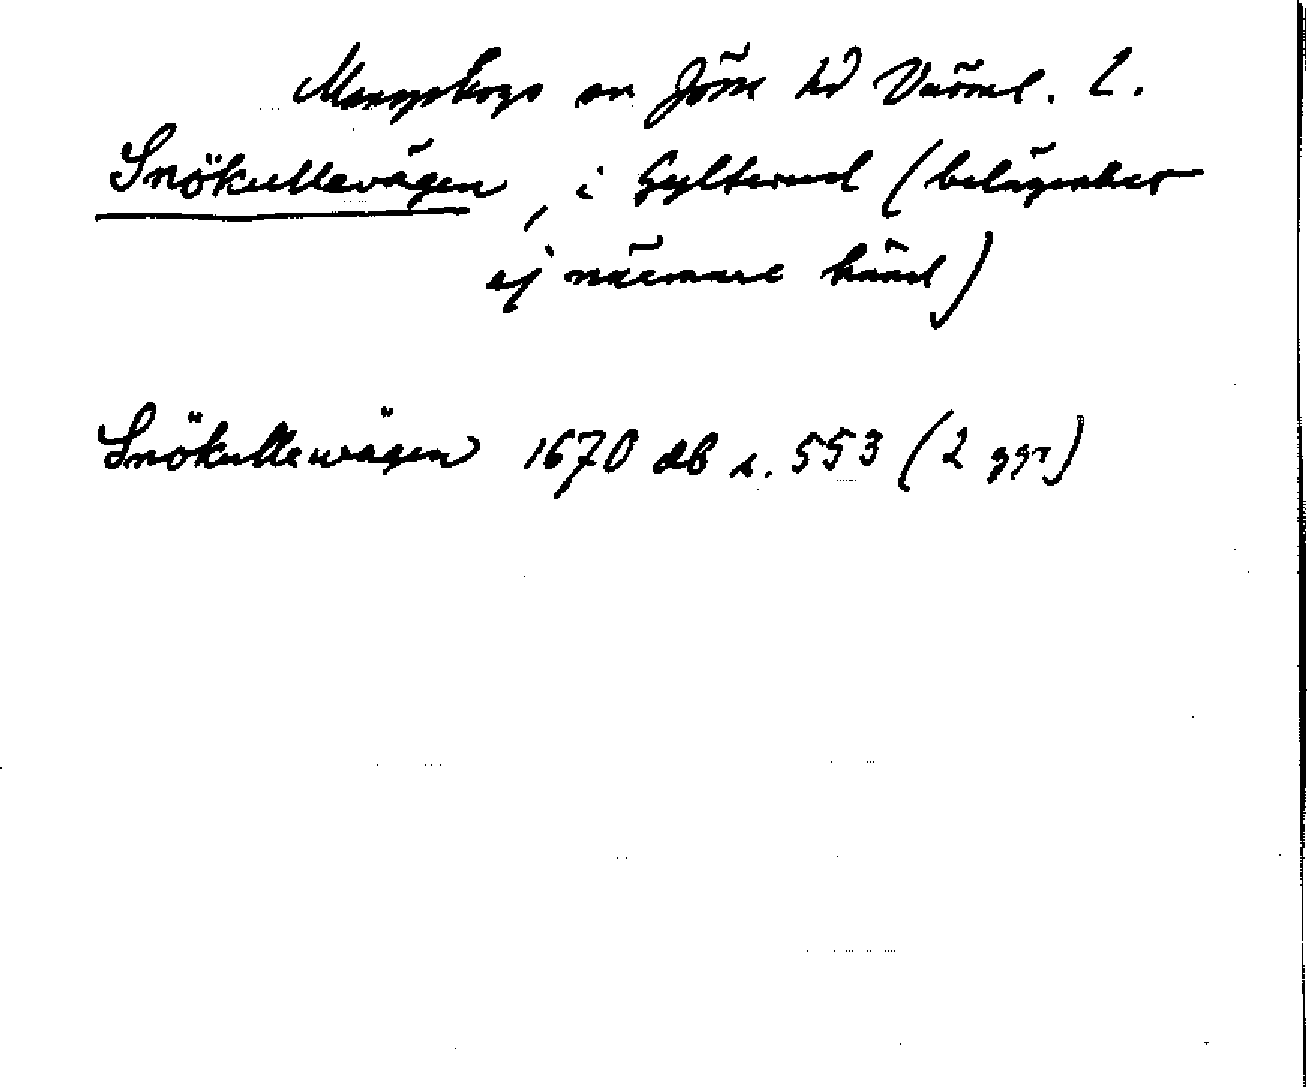 Mangskogs sn Jösse hd Värml. l.
Snökullevägen, i Gylterud (belägenhet
ej närmare känd)
Snökullewägen 1670 db s. 553 (2 ggr)